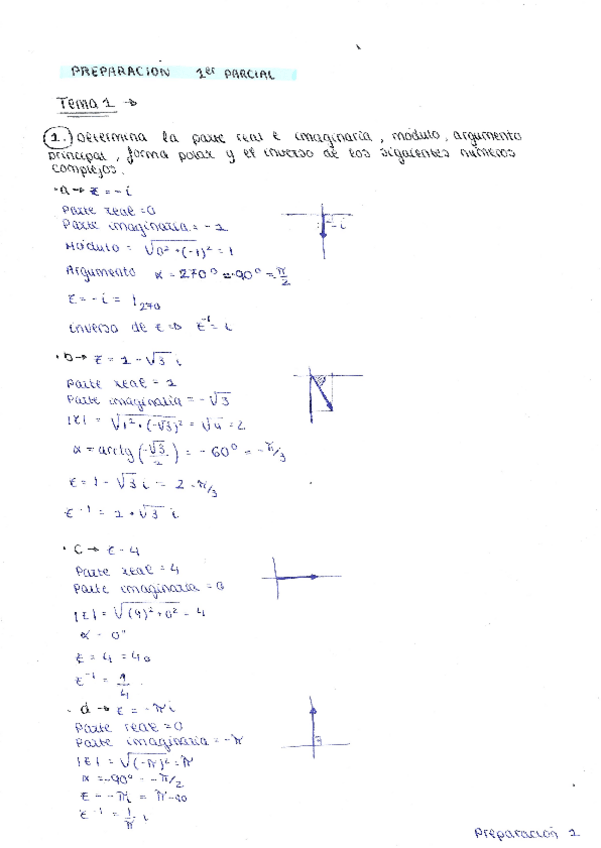 PREPARACIÓN 1er PARCIAL
Tema 1 →
1. Determina la parte real e imaginaria, módulo, argumento
principal, forma polar y el inverso de los siguientes números
complejos.
· a → z = -i
Parte real = 0
Parte imaginaria = -1
Módulo = √0² + (-1)² = 1
-i
Argumento α = 270º = -90º = π/2
z = -i = 1₂₇₀
inversa de z => z⁻¹ = i
· b → z = 1 - √3 i
parte real = 1
Parte imaginaria = -√3
|z| = √1² + (-√3)² = √4 = 2
α = arctg (-√3/1) = -60º = -π/3
z = 1 - √3 i = 2 -π/3
z⁻¹ = 1 + √3 i
· C → z = 4
Parte real = 4
Parte imaginaria = 0
|z| = √(4)² + 0² = 4
α = 0º
z = 4 = 4₀
z⁻¹ = 1/4
- d → z = -πi
Parte real = 0
Parte imaginaria = -π
|z| = √(-π)² = π
α = -90º = -π/2
z = -πi = π₋₉₀
z⁻¹ = 1/π i
Preparación 1